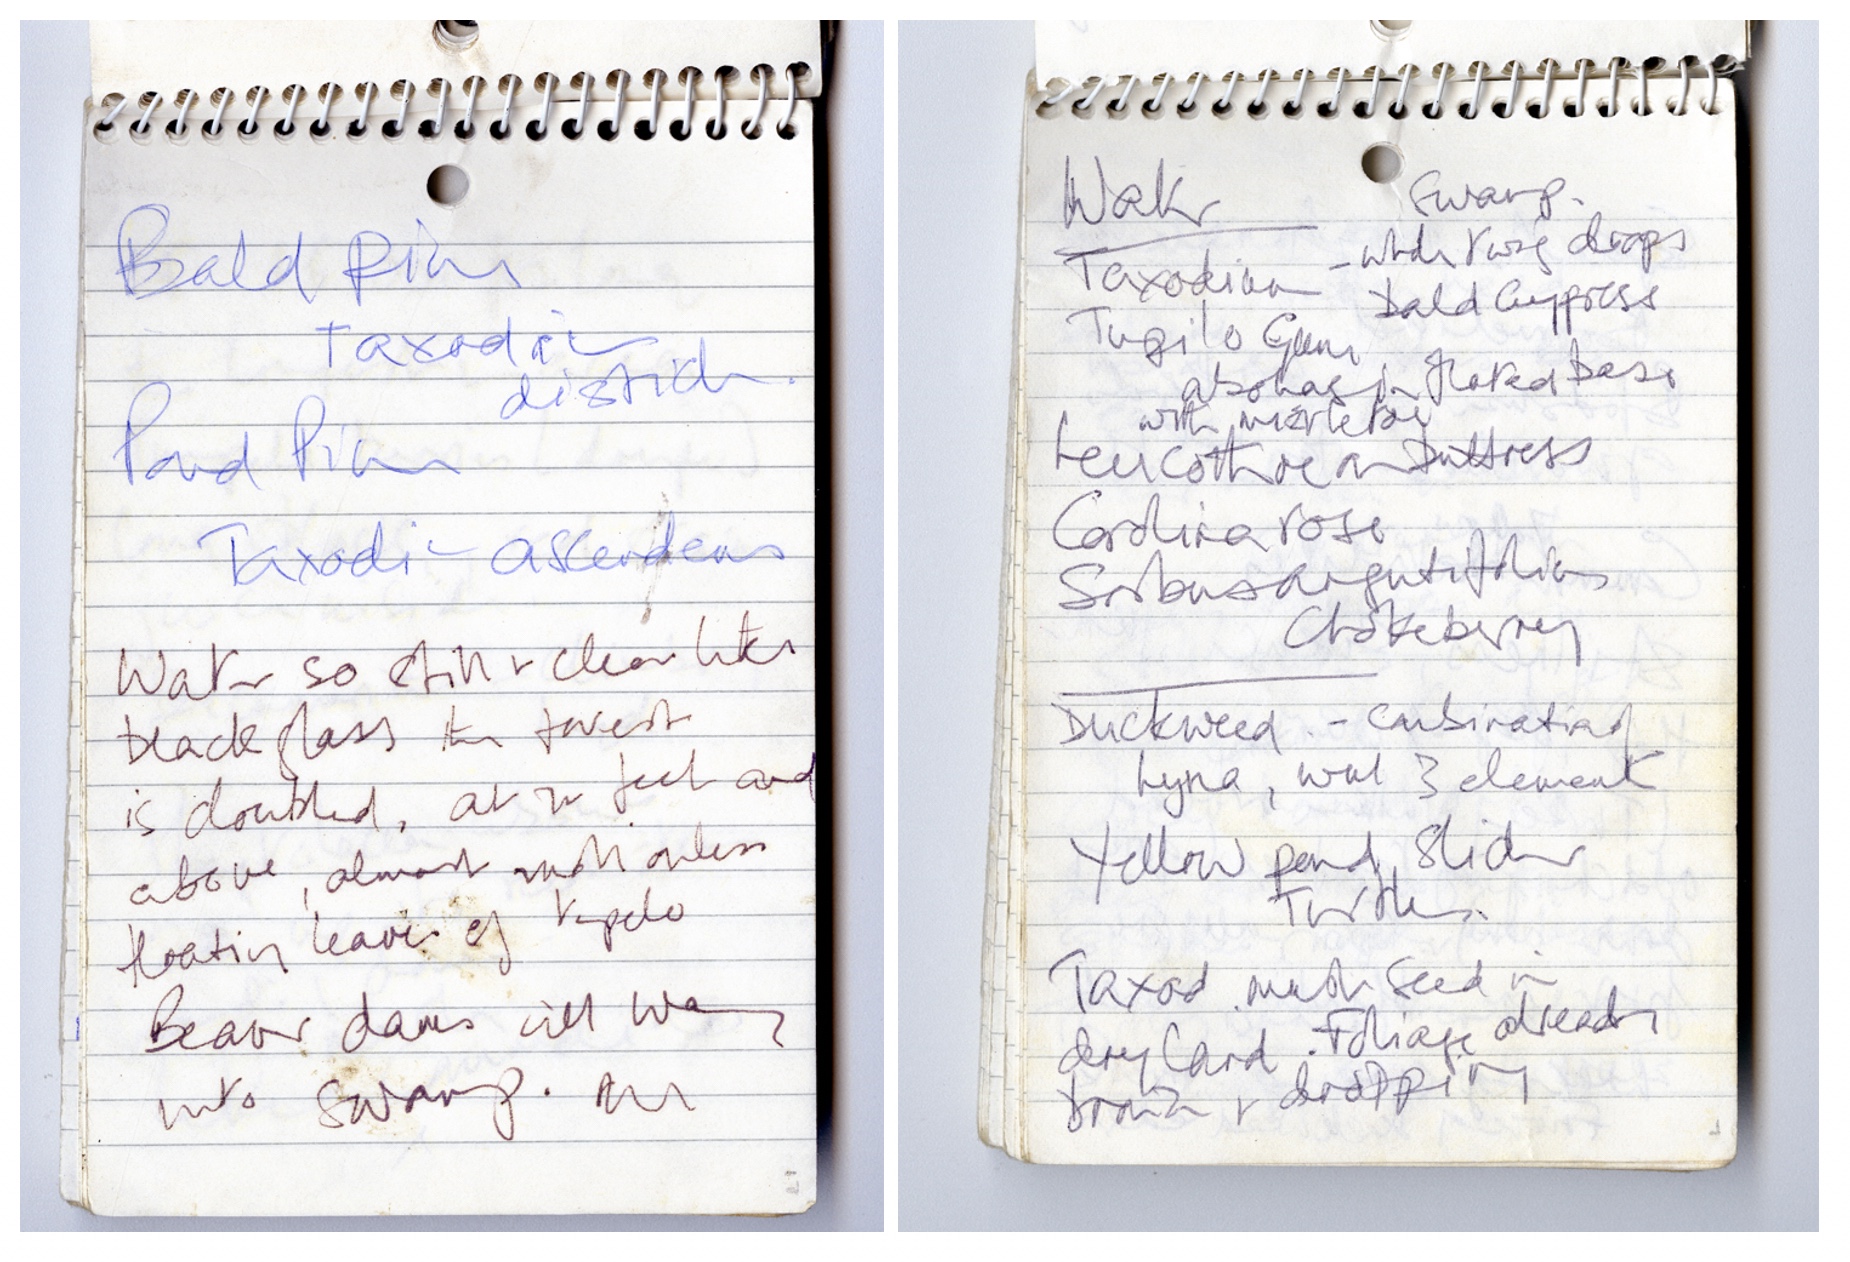 Bald Pine
Taxodiu
distich.
Pond Pine
Taxodi- ascendens
Water so still + clear like
black glass the forest
is doubled, at feet and
above, almost motionless
floating leaves of tupelo
Beaver dams
into swamp.
Water Swamp.
Taxodium - whole twig drops
bald Cypress
Tupilo Gum
also has flared base
with mistletoe
Leucothoe on buttress
Carolina rose
Sorbus argutifolius
Chokeberry
Duckweed - combination of
3 element
Yellow pond slider
Turtle.
Taxod. must seed in
dry land. Foliage already
brown + dropping